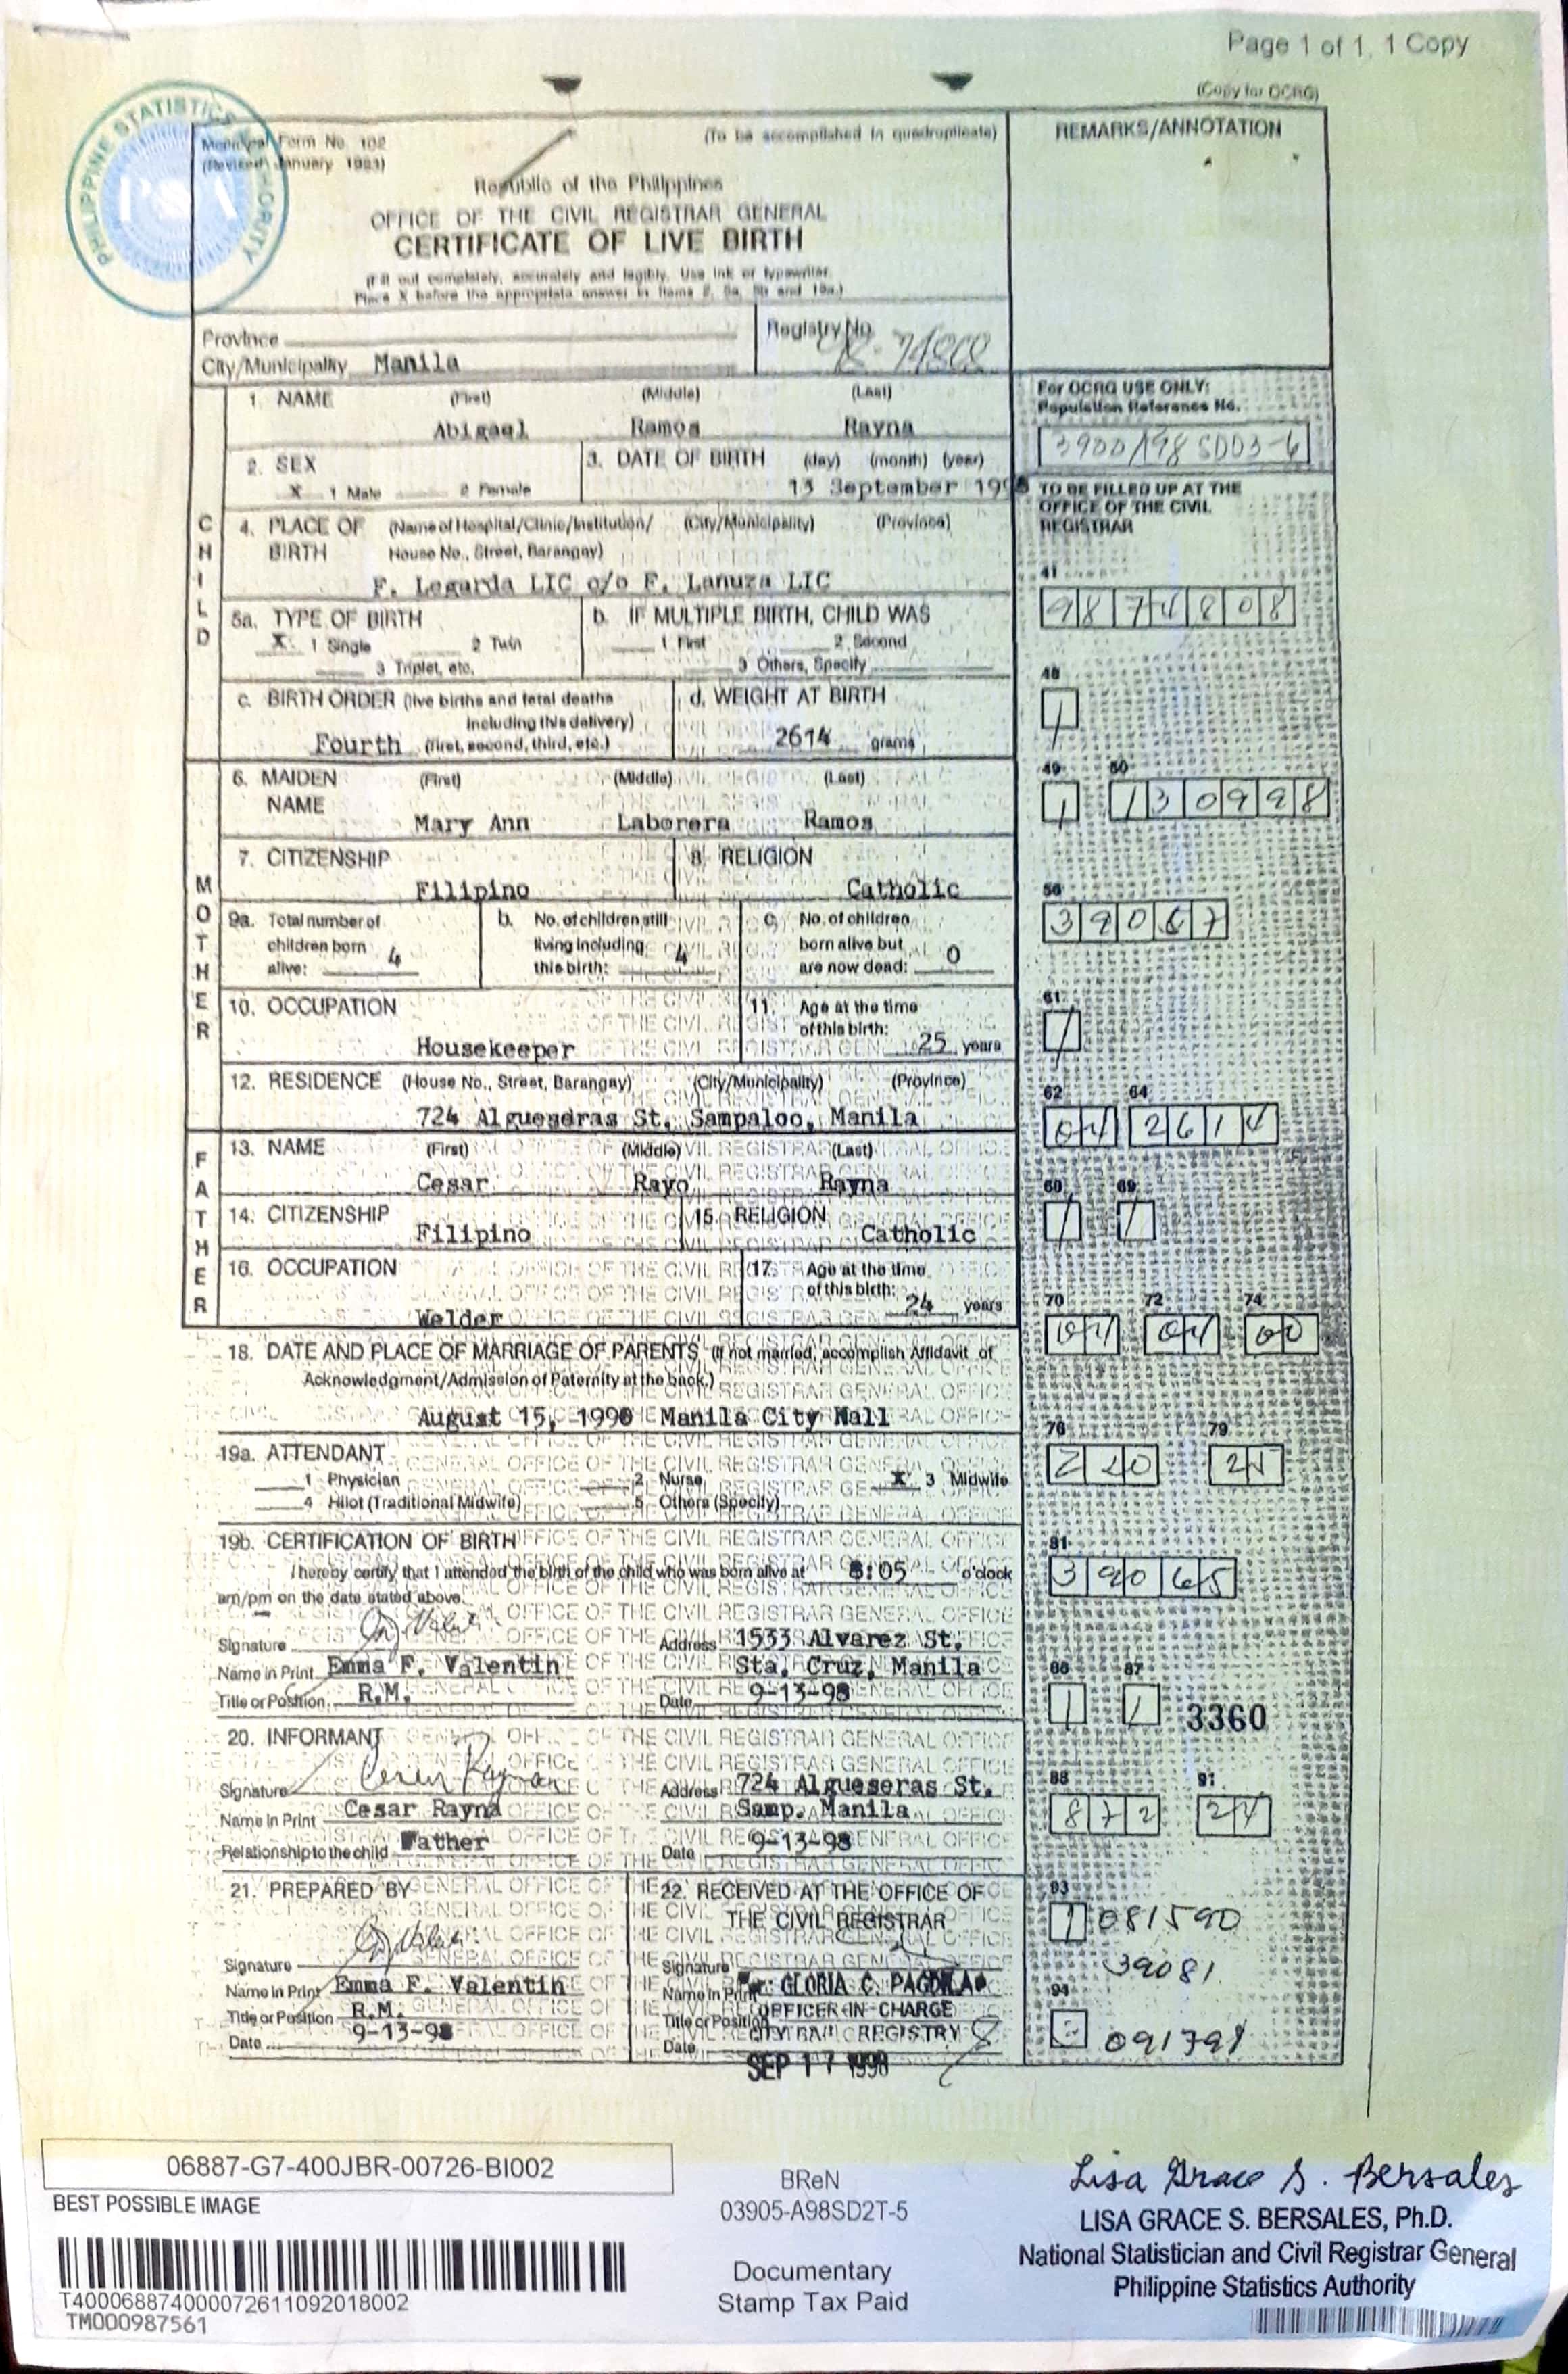 Page 1 of 1, 1 Copy
(Copy for OCRG)
PHILIPPINE STATISTICS AUTHORITY
PSA
Municipal Form No. 102
(To be accomplished in quadruplicate)
REMARKS/ANNOTATION
(Revised January 1993)
Republic of the Philippines
OFFICE OF THE CIVIL REGISTRAR GENERAL
CERTIFICATE OF LIVE BIRTH
(Fill out completely, accurately and legibly. Use ink or typewriter.
Place X before the appropriate answer in items 2, 5a, 5b and 19a.)
Province
Registry No.
City/Municipality Manila
98-74808
CHILD
1. NAME (First) (Middle) (Last)
Abigael Ramos Rayna
For OCRG USE ONLY:
Population Reference No.
2. SEX
X 1 Male 2 Female
3. DATE OF BIRTH (day) (month) (year)
13 September 1998
TO BE FILLED UP AT THE
OFFICE OF THE CIVIL
REGISTRAR
4. PLACE OF BIRTH (Name of Hospital/Clinic/Institution/ (City/Municipality) (Province)
House No., Street, Barangay)
F. Legarda LIC c/o F. Lanuza LIC
41
9 8 7 4 8 0 8
5a. TYPE OF BIRTH
X 1 Single 2 Twin
3 Triplet, etc.
b. IF MULTIPLE BIRTH, CHILD WAS
1 First 2 Second
3 Others, Specify
48
1
c. BIRTH ORDER (live births and fetal deaths
including this delivery)
Fourth (first, second, third, etc.)
d. WEIGHT AT BIRTH
2614 grams
49 50
1 1 3 0 9 9 8
MOTHER
6. MAIDEN NAME (First) (Middle) (Last)
Mary Ann Laborera Ramos
7. CITIZENSHIP
Filipino
8. RELIGION
Catholic
56
3 9 0 6 7
9a. Total number of
children born
alive: 4
b. No. of children still
living including
this birth: 4
c. No. of children
born alive but
are now dead: 0
10. OCCUPATION
Housekeeper
11. Age at the time
of this birth: 25 years
61
1
12. RESIDENCE (House No., Street, Barangay) (City/Municipality) (Province)
724 Algueseras St. Sampaloc, Manila
62 64
0 4 2 6 1 4
FATHER
13. NAME (First) (Middle) (Last)
Cesar Rayo Rayna
68 69
1 1
14. CITIZENSHIP
Filipino
15. RELIGION
Catholic
16. OCCUPATION
Welder
17. Age at the time
of this birth: 24 years
70 72 74
0 4 0 4 0 0
18. DATE AND PLACE OF MARRIAGE OF PARENTS (If not married, accomplish Affidavit of
Acknowledgment/Admission of Paternity at the back.)
August 15, 1990 Manila City Hall
19a. ATTENDANT
1 Physician 2 Nurse X 3 Midwife
4 Hilot (Traditional Midwife) 5 Others (Specify)
76 79
2 2 0 2 5
19b. CERTIFICATION OF BIRTH
I hereby certify that I attended the birth of the child who was born alive at 8:05 o'clock
am/pm on the date stated above.
81
3 9 0 6 5
Signature
Address 1533 Alvarez St.
Name in Print Emma F. Valentin
Sta. Cruz, Manila
Title or Position R.M.
Date 9-13-98
86 87
1 1
3360
20. INFORMANT
Signature
Address 724 Algueseras St.
Name in Print Cesar Rayna
Samp. Manila
Relationship to the child Father
Date 9-13-98
88 91
8 7 2 2 4
21. PREPARED BY
22. RECEIVED AT THE OFFICE OF
THE CIVIL REGISTRAR
93
1 081590
39081
Signature
Signature
Name in Print Emma F. Valentin
Name in Print GLORIA C. PAGDILAO
Title or Position R.M.
Title or Position OFFICER-IN-CHARGE
CITY CIVIL REGISTRY
Date 9-13-98
Date SEP 17 1998
94
091798
06887-G7-400JBR-00726-BI002
BEST POSSIBLE IMAGE
T400068874000072611092018002
TM000987561
BReN
03905-A98SD2T-5
Documentary
Stamp Tax Paid
Lisa Grace S. Bersales
LISA GRACE S. BERSALES, Ph.D.
National Statistician and Civil Registrar General
Philippine Statistics Authority